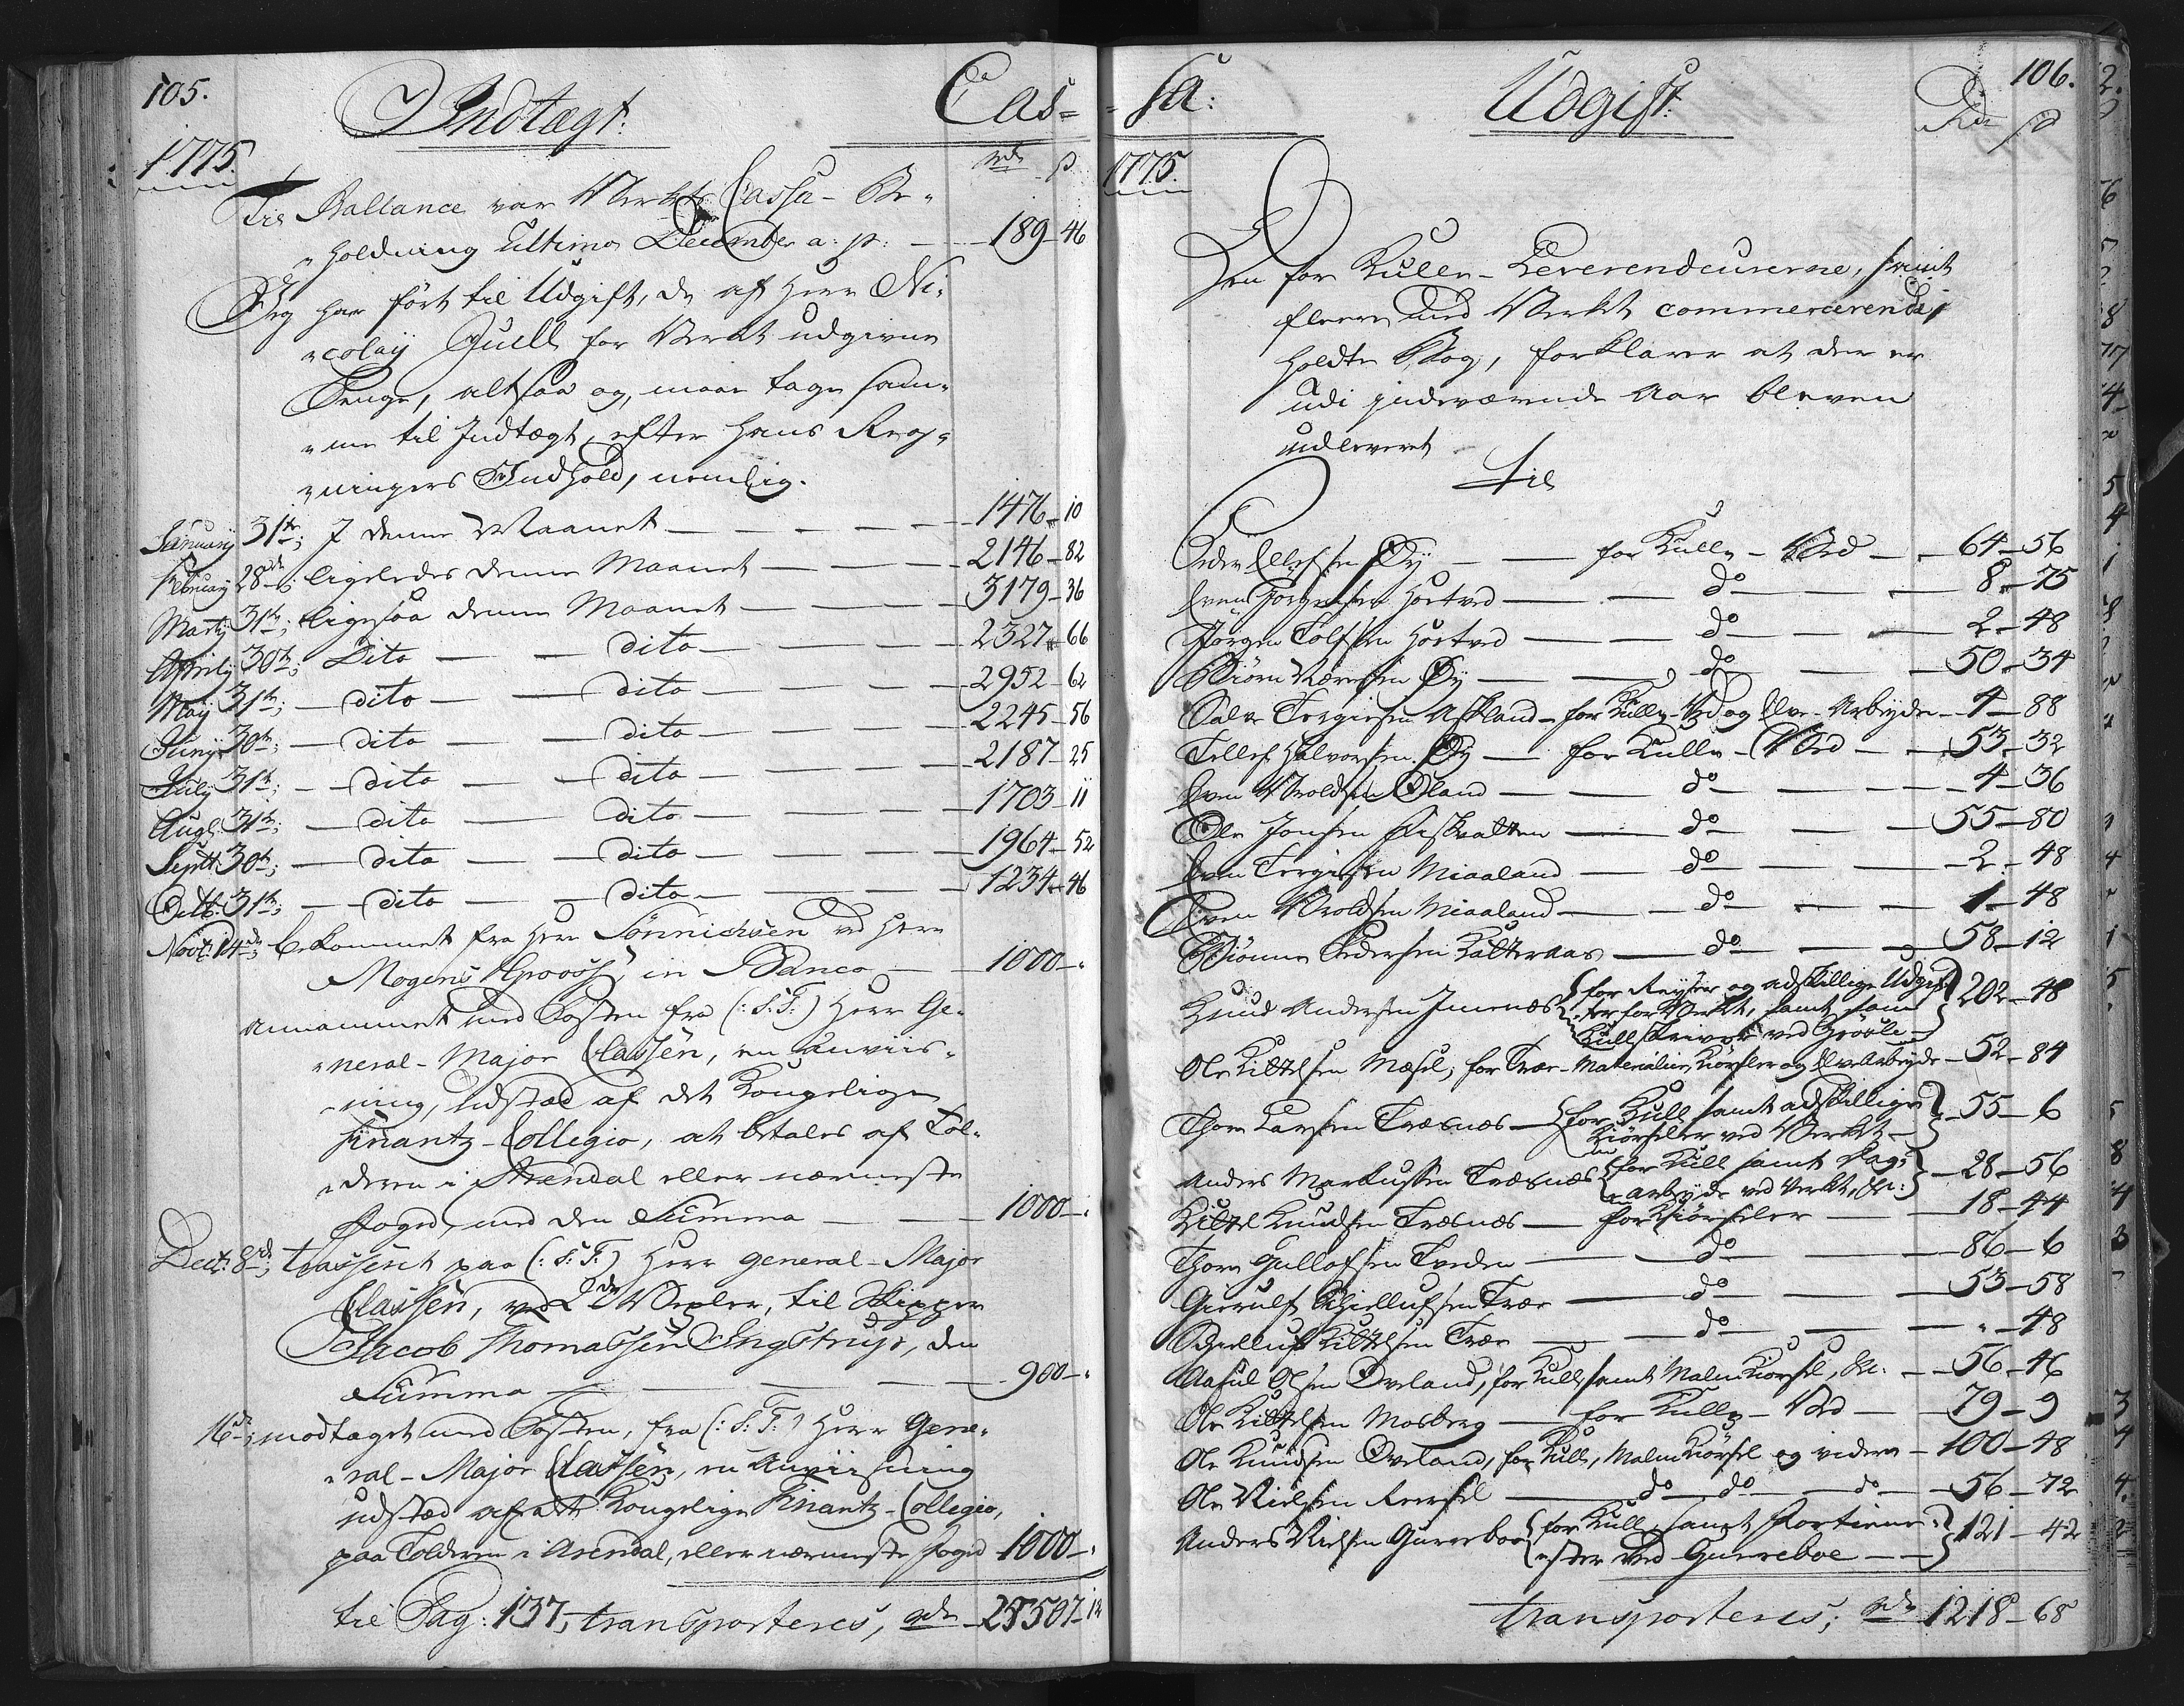 105.
Indtægt:
Cas=
1775.
rdr ß
Til Ballance var Værkets Cassa-Be„
„holdning Ultimo December a: p: — 189-46
Jeg har ført til Udgift, de af Herr Ni„
„colaÿ Juell for Værket udgivne
Penge, altsaa og, maae tage sam„
„me til Indtægt, efter hans Reg„
„ningers Indhold, nemlig.
Januarÿ 31te; I denne Maanet — 1476-10
Februarÿ 28de; ligeledes denne Maanet — 2146-82
Martÿ 31te; ligesaa denne Maanet — 3179-36
Aprilÿ 30te; Dito — dito — 2327-66
Maÿ 31te; — dito — dito — 2952-62
Junÿ 30te; — dito — dito — 2245-56
Julÿ 31te; — dito — dito — 2187-25
Augt: 31te; — dito — dito — 1703-11
Septt: 30te; — dito — dito — 1964-52
Octb: 31te; — dito — dito — 1234-46
Novt: 14de; bekommet fra Herr Sönnichsen ved Herr
Mogens Grooss, in Banco — 1000-„
annammet med Posten fra (: S: T:) Herr Ge„
„neral-Major Classen, en Anviis„
„ning, udsted af det Kongelige
Finantz-Collegio, at betales af Tol„
„deren i Arendal eller nærmeste
Foged, med den Summa — 1000-„
Dect: 8de; trasseret paa (: S: T:) Herr General-Major
Classen, ved 2de Vexler, til Skipper
Jacob Thomassen Engstrup, den
Summa — 900-„
16de; modtaget med Posten, fra (: S: T:) Herr Gene„
„ral-Major Classen, en Anviisning
udsted af det Kongelige Finantz-Collegio,
paa Tolderen i Arendal, eller nærmeste Foged 1000-„
til Pag: 137, transporteres, rdr 25507-12
106.
sa:
Udgift:
Rdr ß
1775.
Den for Kulle-Leverendeurerne, samt
fleere med Værket commercerende,
holdte Bog, forklarer at der er
udi indeværende Aar bleven
udleveret
Til
Peder Ellefsen Øÿ — for Kulle-Ved — 64-56
Even Jørgensen Hortved — do — 8-75
Jørgen Tolfsen Hortved — do — 2-48
Biørn Øÿ — do — 50-34
Salve Tergiesen Askland — for Kulle-Ved og Elve-Arbeyde — 4-88
Tellef Halvorsen Øÿ — for Kulle-Ved — 53-32
Even Øland — do — 4-36
Ole Jonsen — do — 55-80
Even Tergiesen Miaaland — do — 2-48
Even Miaaland — do — 1-48
Pedersen Kalteraas — do — 58-12
Knud Andersen Imenæs {for Reyser og adskillige Udgif„
„ter for Værket, samt som
Kullskriver ved} 202-48
Ole Kittelsen Mæsel, for Træ-Materialier, Kiørseler og Elvearbeyde — 52-84
Thore Larsen Træsnæs — {for Kull samt adskillige
Kiørseler ved Værket —} 55-6
Anders Markussen Træsnæs {for Kull samt Dag„
„arbeyde ved Værket, &c:} — 28-56
Kittel Knudsen Træsnæs — for Kiørseler — 18-44
Thore Gullofsen Tveden — do — 86-6
Gierulf Træe — do — 53-58
Kittelsen Træe — do — „-48
Aasul Olsen Oveland, for Kull, samt Malm Kiørsel, &c: — 56-46
Ole Kittelsen Mosberg — for Kulle-Ved — 79-9
Ole Knudsen Oveland, for Kull, Malm Kiørsel og videre — 100-48
Ole Nielsen — do do — do — 56-72
Anders Nielsen Gurreboe {for Kull, samt
ved Gurreboe —} 121-42
Transporteres; rdr 1218-68